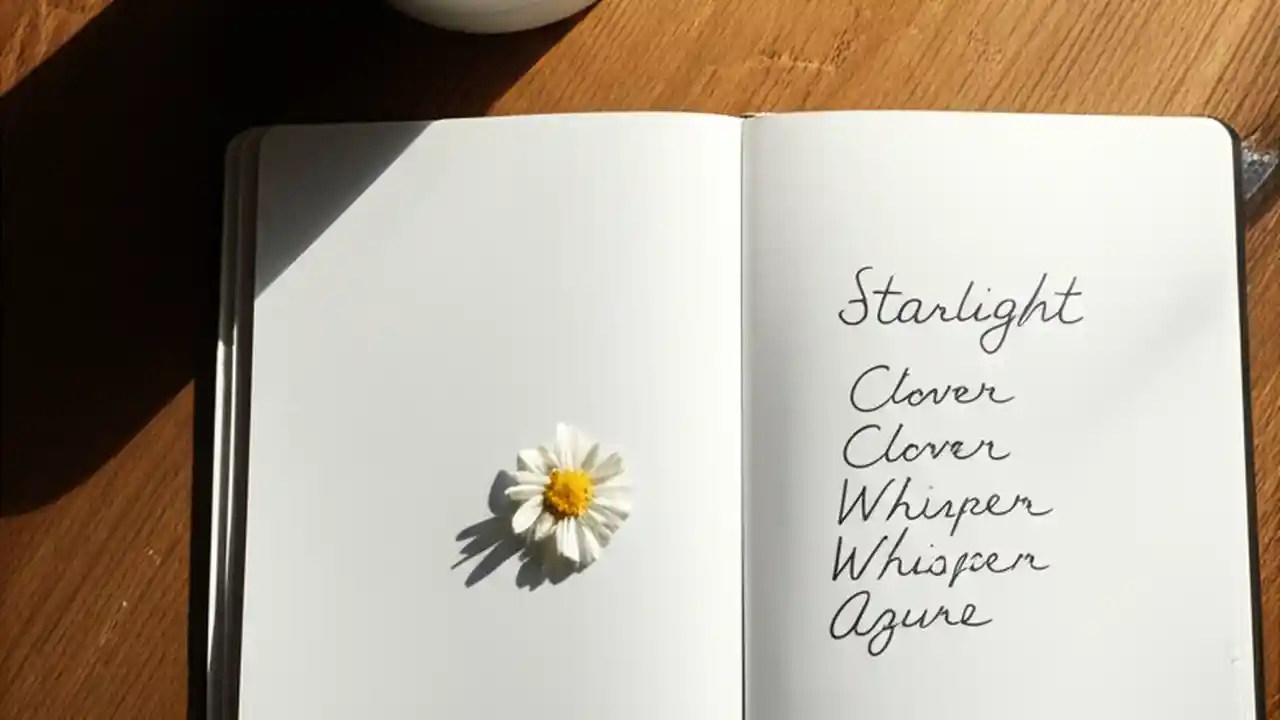 Starlight
Clover
Clover
Whisper
Whisper
Azure